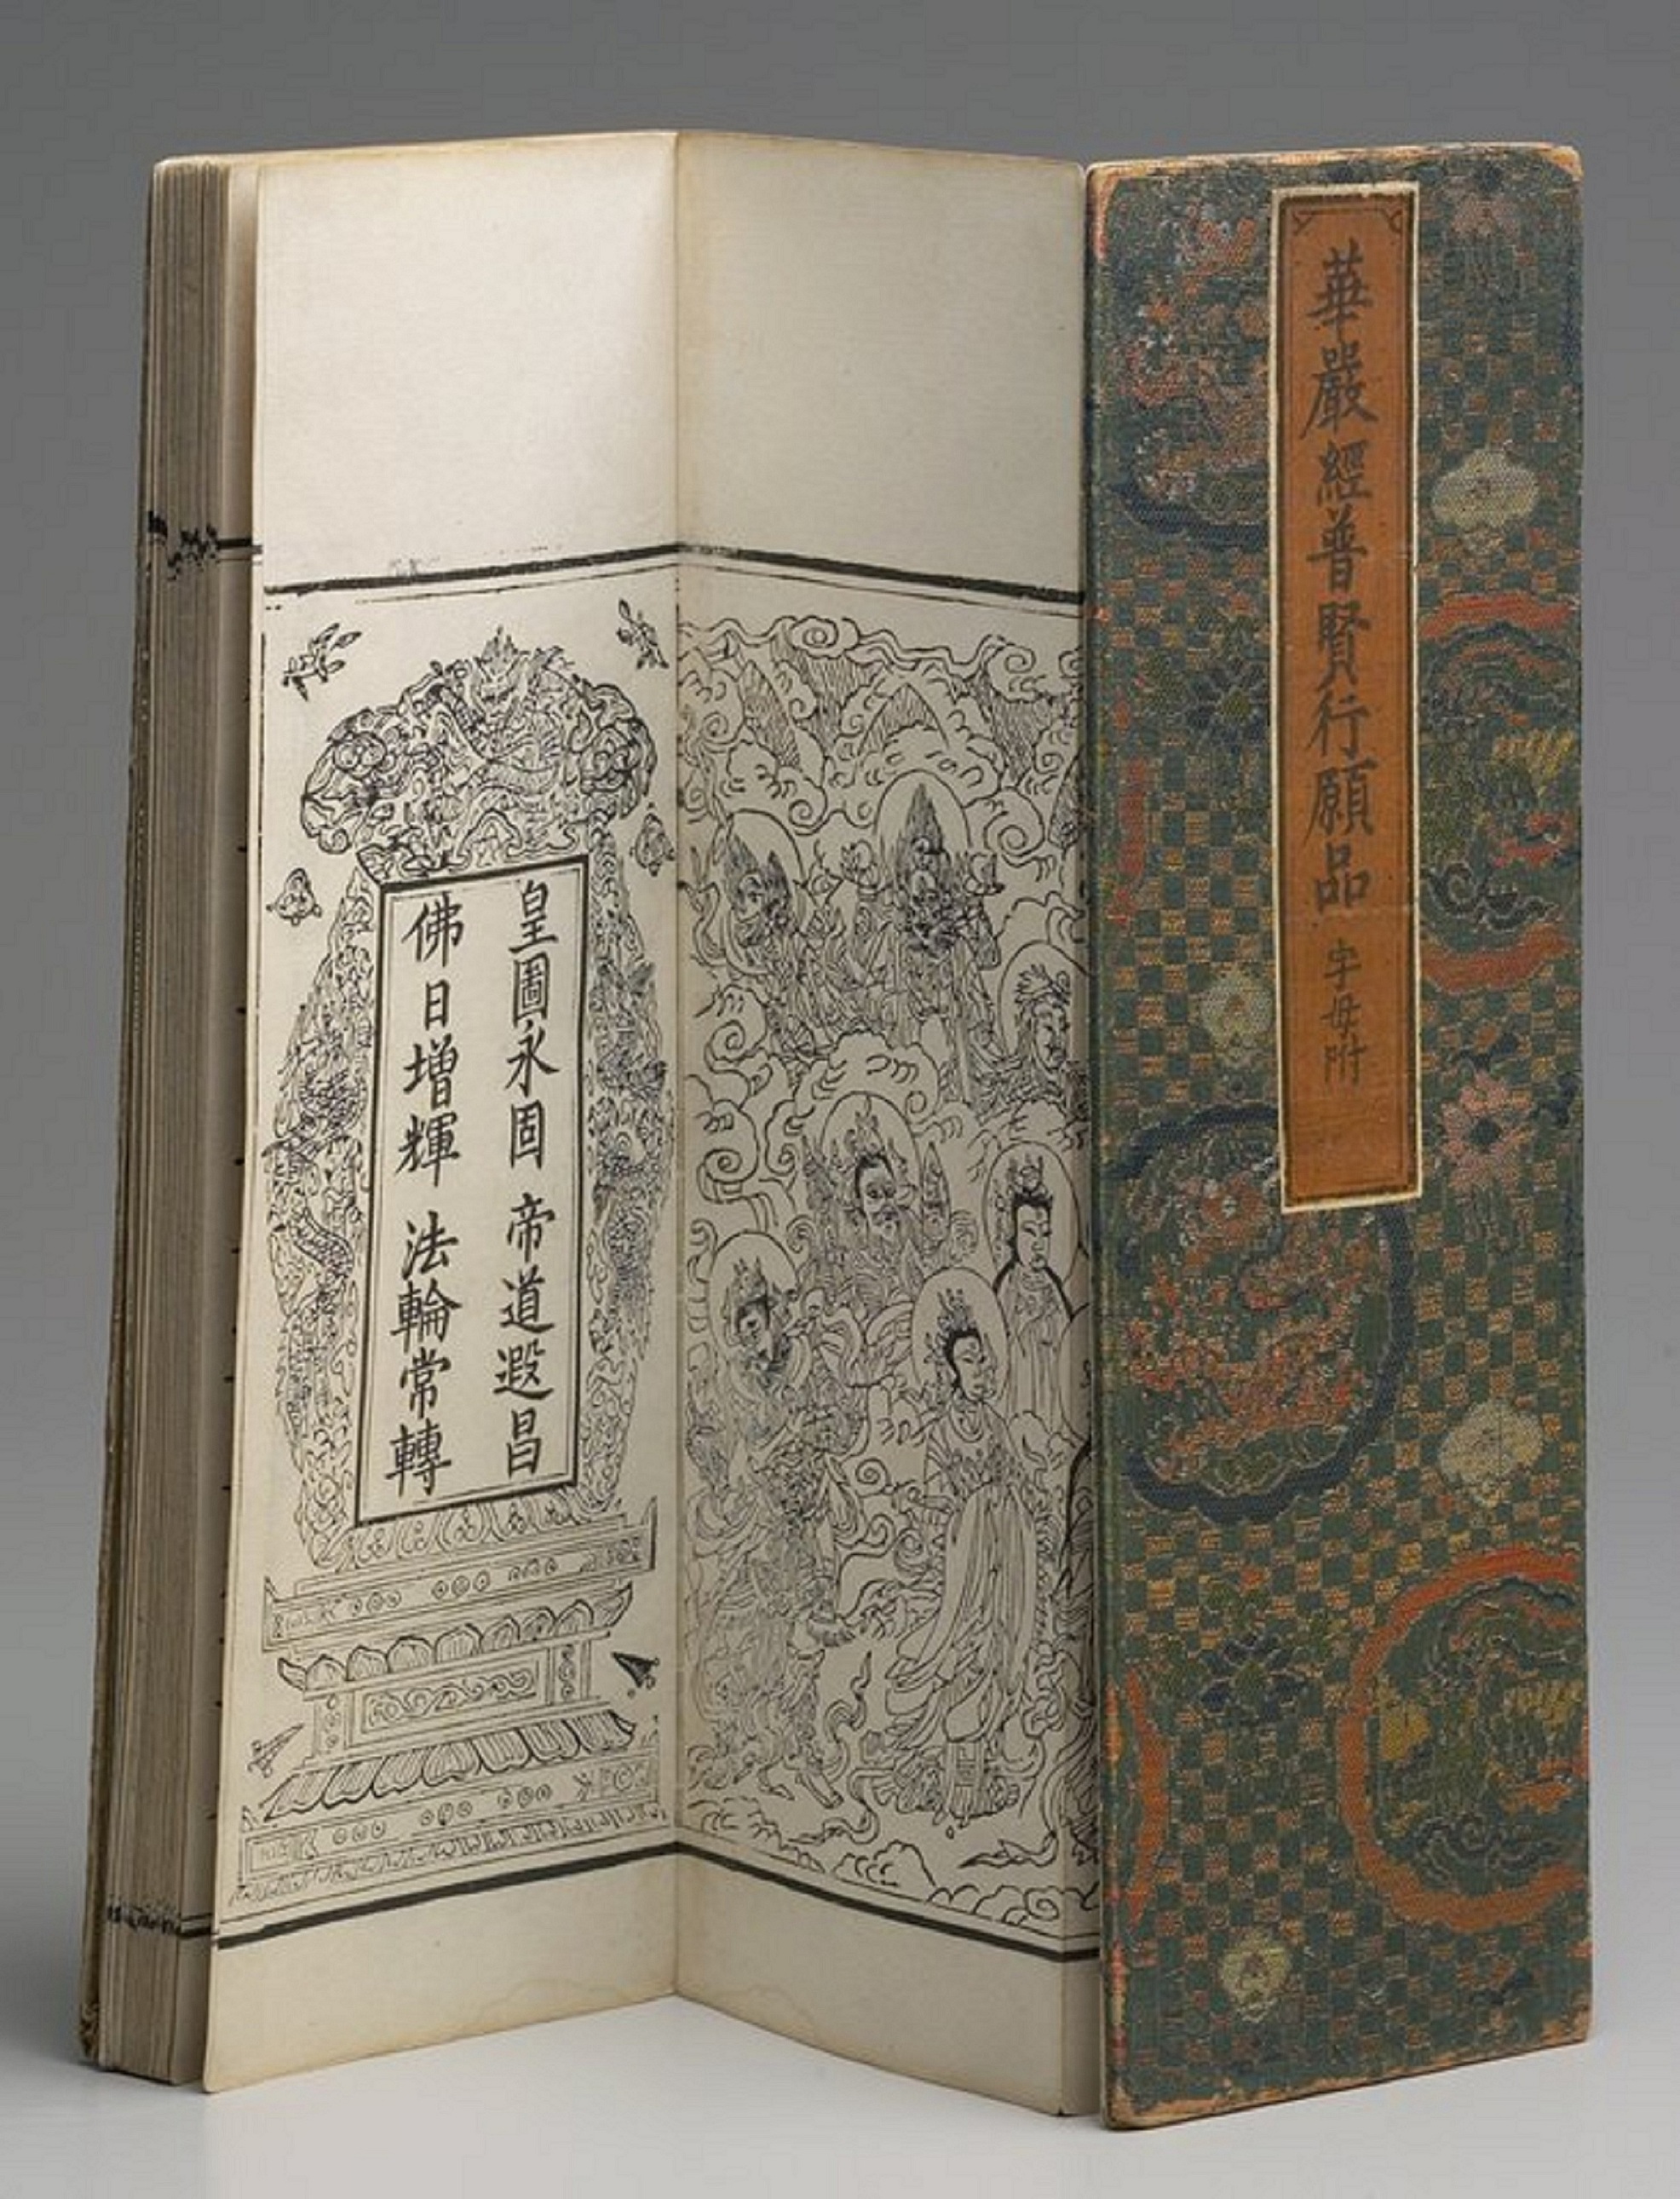 華嚴經普賢行願品 字母附
皇圖永固 帝道遐昌
佛日增輝 法輪常轉